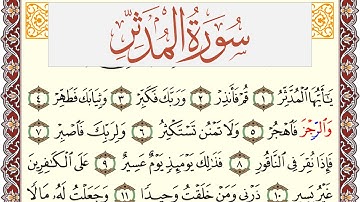 سُورَةُ الْمُدَّثِّرِ
يَٰٓأَيُّهَا ٱلْمُدَّثِّرُ ١ قُمْ فَأَنذِرْ ٢ وَرَبَّكَ فَكَبِّرْ ٣ وَثِيَابَكَ فَطَهِّرْ ٤
وَٱلرُّجْزَ فَٱهْجُرْ ٥ وَلَا تَمْنُن تَسْتَكْثِرُ ٦ وَلِرَبِّكَ فَٱصْبِرْ ٧
فَإِذَا نُقِرَ فِي ٱلنَّاقُورِ ٨ فَذَٰلِكَ يَوْمَئِذٍ يَوْمٌ عَسِيرٌ ٩ عَلَى ٱلْكَٰفِرِينَ
غَيْرُ يَسِيرٍ ١٠ ذَرْنِي وَمَنْ خَلَقْتُ وَحِيدًا ١١ وَجَعَلْتُ لَهُۥ مَالًا